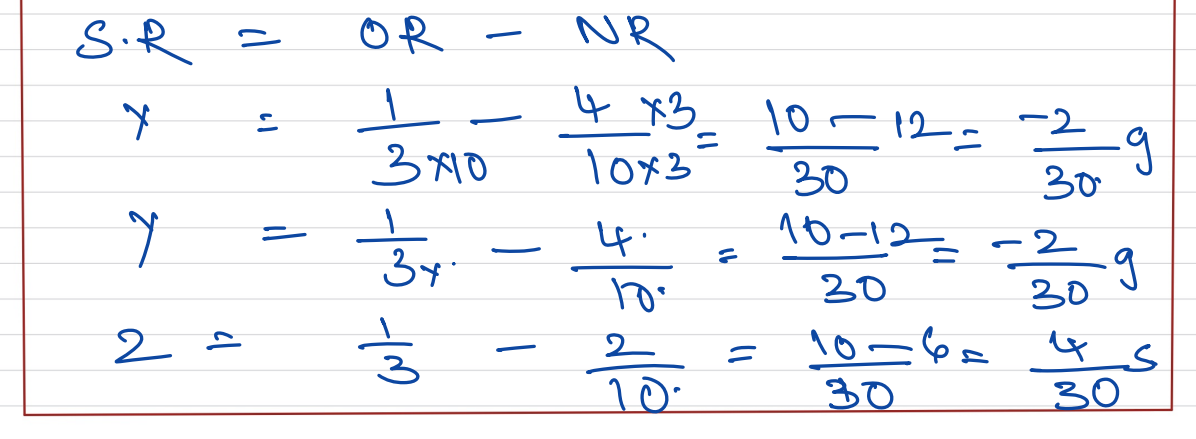 S.R = OR - NR
x = 1/3×10 - 4×3/10×3 = 10-12/30 = -2/30 g
y = 1/3× - 4/10 = 10-12/30 = -2/30 g
2 = 1/3 - 2/10 = 10-6/30 = 4/30 s